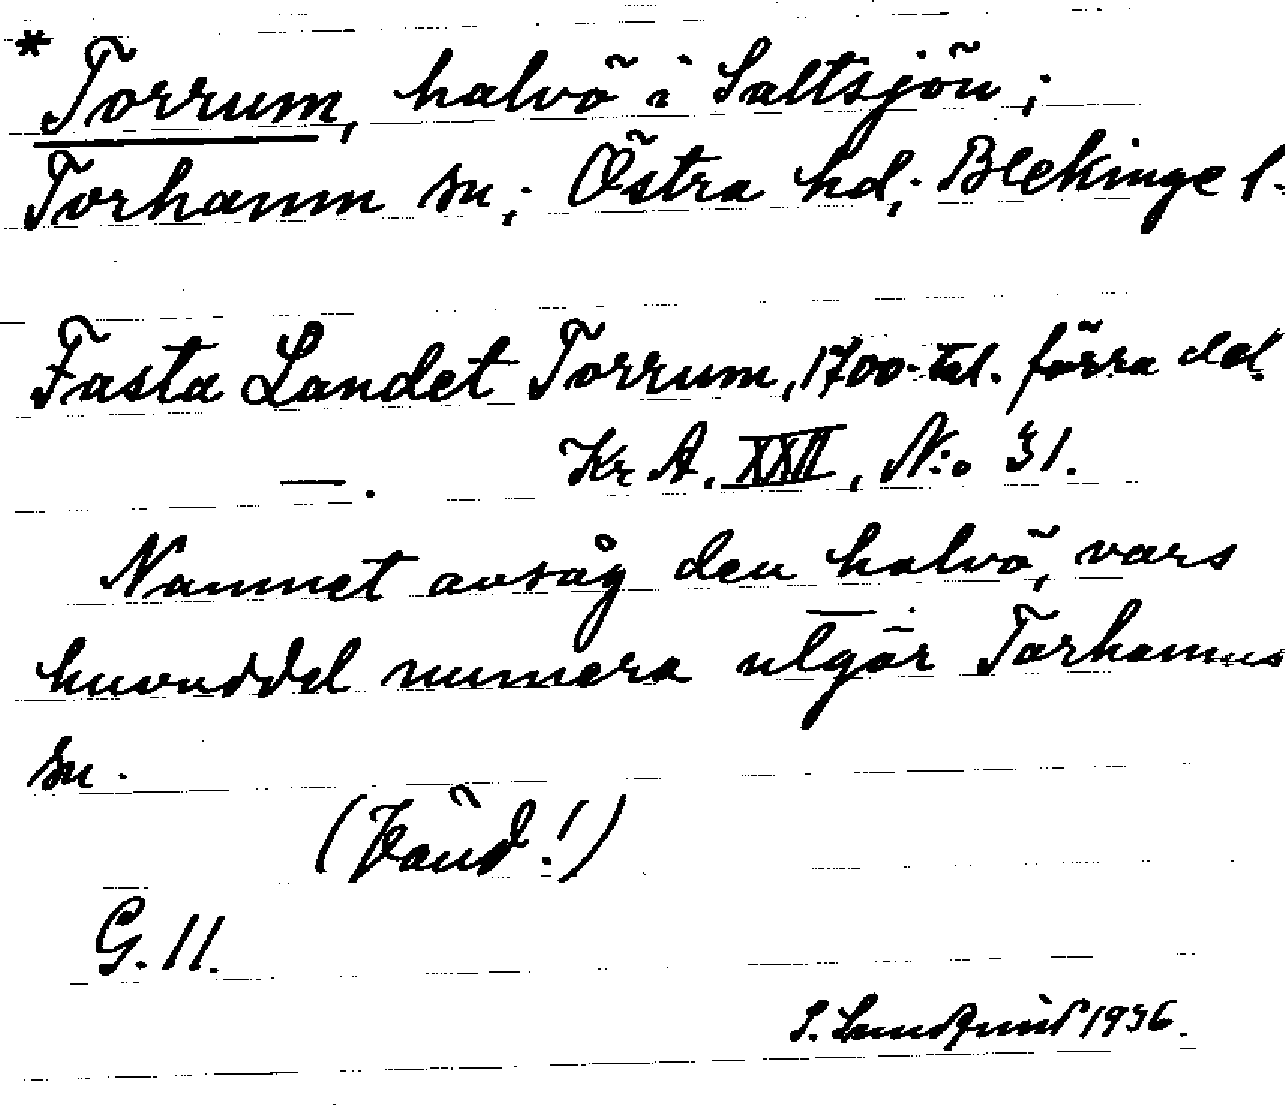 * Torrum, halvö i Saltsjön;
Torhamn sn; Östra hd; Blekinge l.
Fasta Landet Torrum, 1700-tal. förra del.
—. Kr A. XXII, N:o 31.
Namnet avsåg den halvö, vars
huvuddel numera utgör Torhamns
sn.
(Vänd!)
G. 11.
S. 1936.